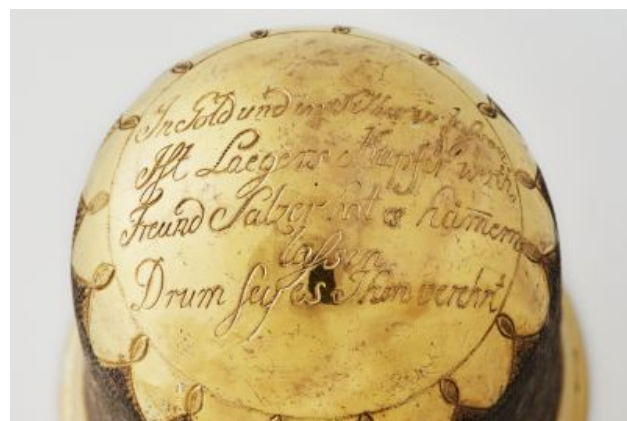 In Gold und
Ist Laegens Kupfer werth,
Freund Salzer hat es hämern
laßen
Drum sey es Ihm verehrt